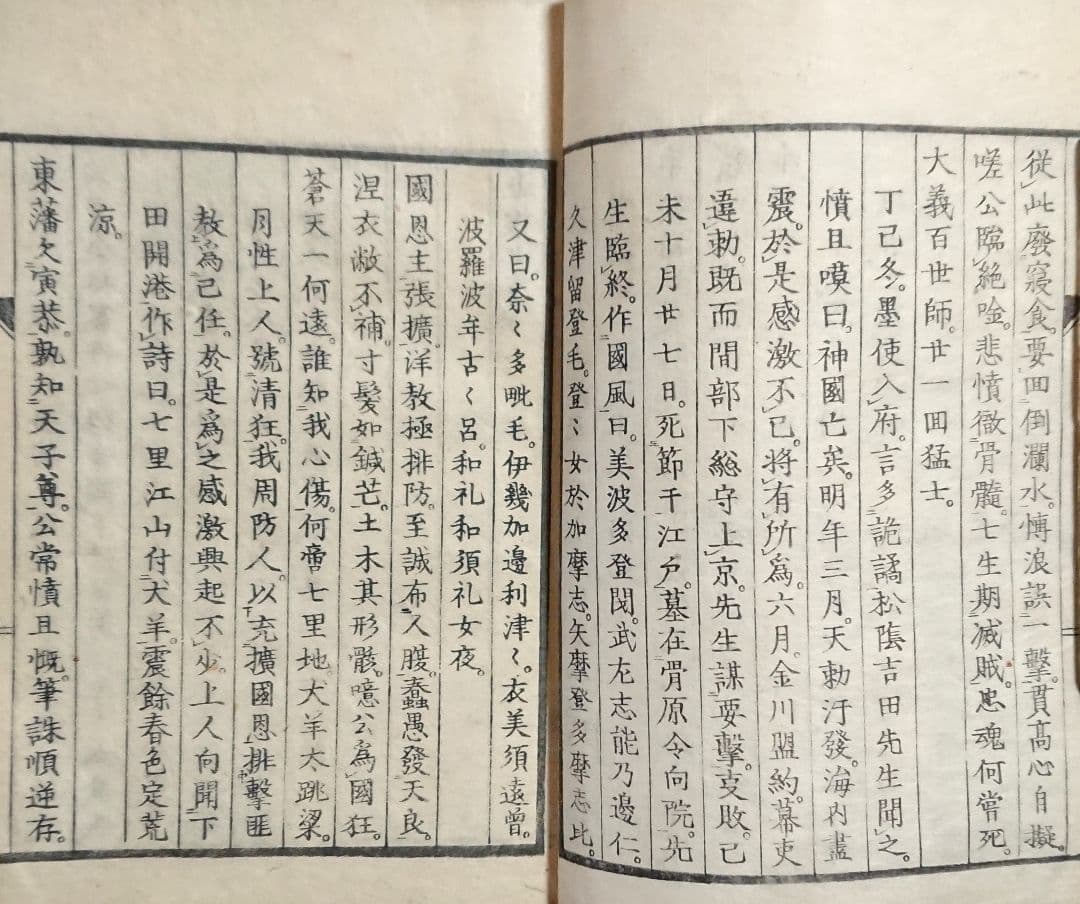 從此廢寢食。要回倒瀾水。慱浪誤一擊。貫高心自擬。
嗟公臨絕唫。悲憤徹骨髓。七生期滅賊。忠魂何嘗死。
大義百世師。廿一回猛士。
丁己冬。墨使入府。言多詭譎。松陰吉田先生聞之。
憤且嘆曰。神國亡矣。明年三月。天勅汙發。海內盡
震。於是感激不已。將有所為。六月金川盟約。幕吏
違勅。既而間部下総守上京。先生謀要擊。支敗。己
未十月廿七日。死節于江戶。墓在骨原令向院。先
生臨終。作國風曰。美波多登閔。武左志能乃邊仁。
久津留登毛。登〻女於加摩志。矢摩登多摩志比。
又曰。奈〻多毗毛。伊幾加邊利津〻。衣美須遠曾。
波羅波牟古〻呂。和礼和須礼女夜。
國恩主張擴。洋教極排防。至誠布人腹。蠢愚發天良。
涅衣敝不補。寸髮如鍼芒。土木其形骸。噫公為國狂。
蒼天一何遠。誰知我心傷。何啻七里地。犬羊太跳梁。
月性上人。號清狂。我周防人。以充擴國恩。排擊匪
教。為己任。於是為之感激興起不少。上人向聞下
田開港。作詩曰。七里江山付犬羊。震餘春色定荒
涼。
東藩欠寅恭。孰知天子尊。公常憤且慨。筆誅順逆存。